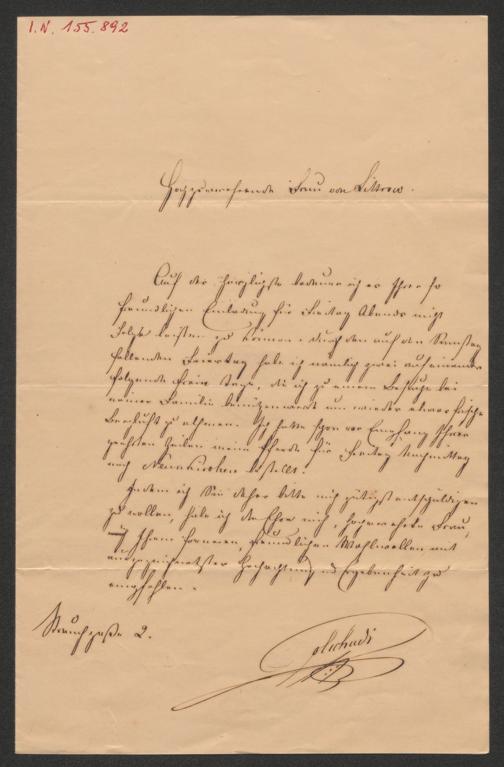 I.N. 155.892
Hochzuverehrende Frau von Littrow.
Auf das herzlichste bedaure ich es Ihrer so
freundlichen Einladung für Freitag Abends nicht
Folge leisten zu können. Durch den auf den Samstag
fallenden Feiertag habe ich nämlich zwei aufeinander
folgende freie Tage, die ich zu einem Besuche bei
meiner Familie benützen werde um wieder etwas frische
Bergluft zu athmen. Ich hatte schon vor Empfang Ihrer
geehrten Zeilen meine Pferde für Freitag Nachmittag
nach Neunkirchen bestellt.
Indem ich Sie daher bitte mich gütigst entschuldigen
zu wollen, habe ich die Ehre mich, hochverehrte Frau,
Ihrem ferneren freundlichen Wohlwollen mit
ausgezeichnetster Hochachtung und Ergebenheit zu
empfehlen.
Strauchgasse 2.